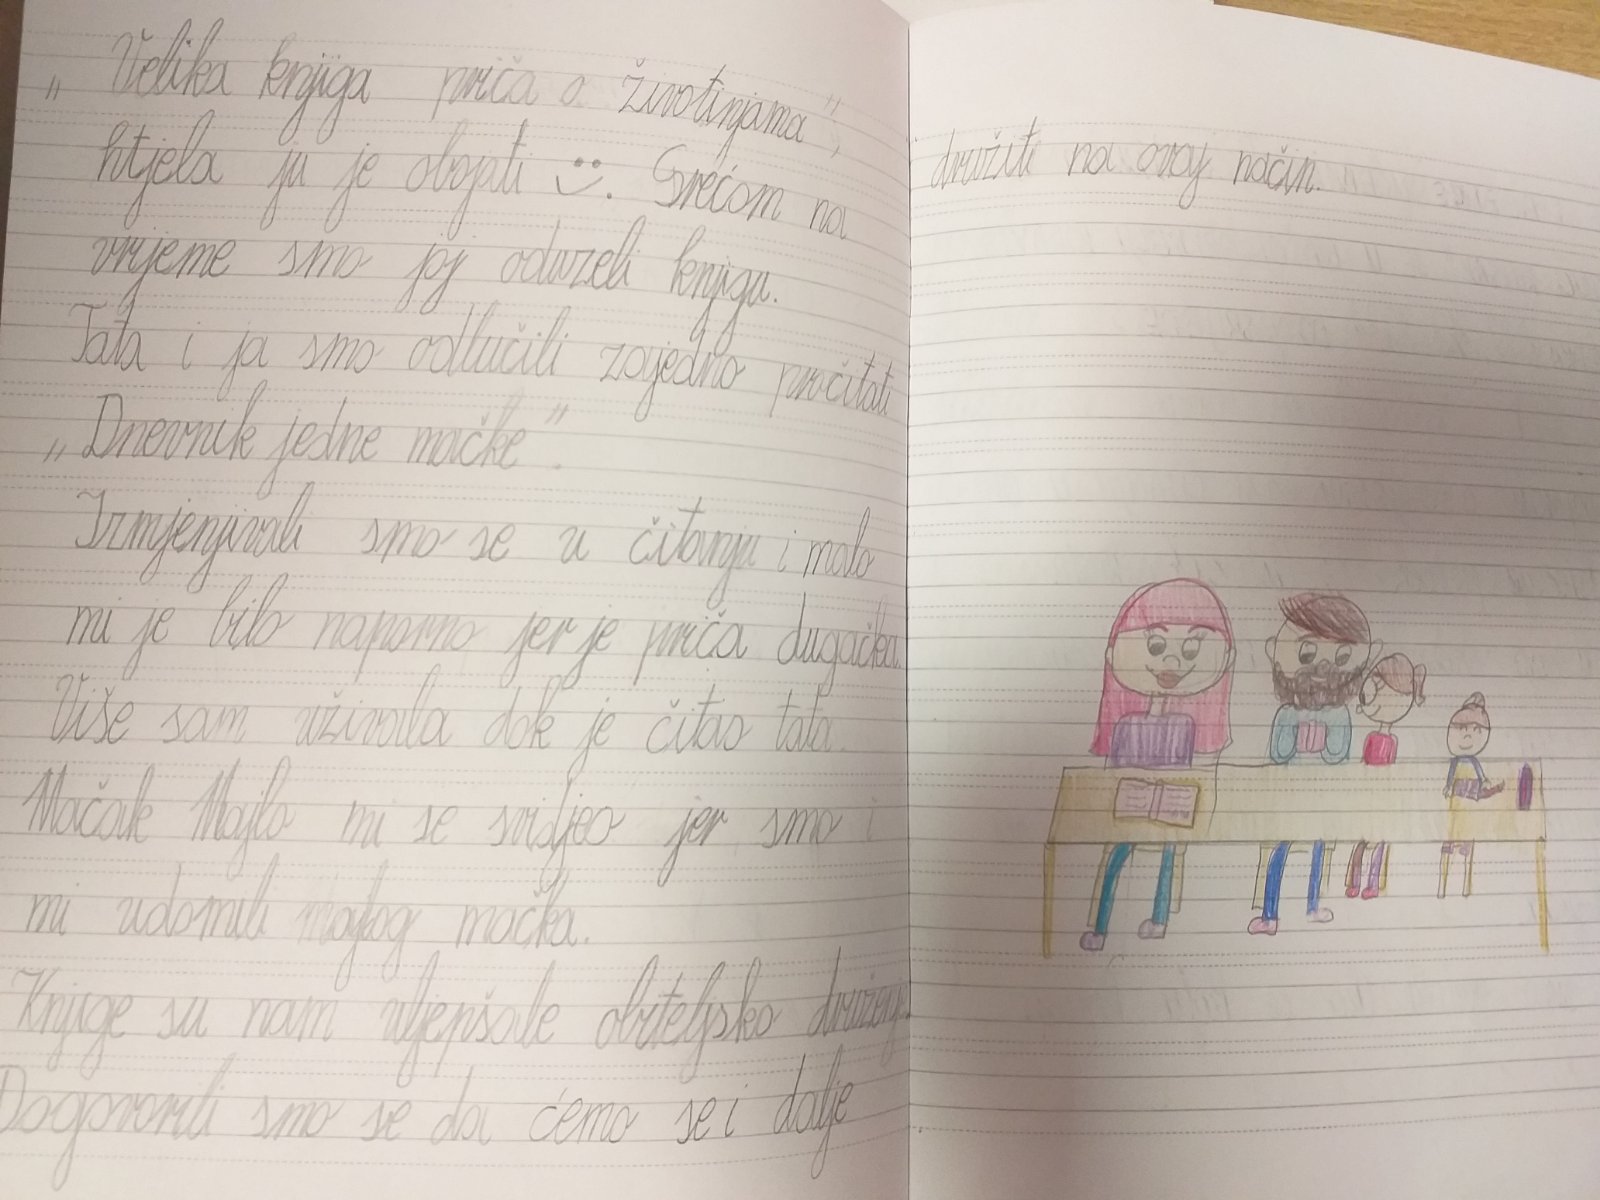 „Velika knjiga priča o životinjama",
htjela ju je obojati :). Srećom na
vrijeme smo joj oduzeli knjigu.
Tata i ja smo odlučili zajedno pročitati
„Dnevnik jedne mačke".
Izmjenjivali smo se u čitanju i malo
mi je bilo naporno jer je priča dugačka.
Više sam uživala dok je čitao tata.
Mačak Majlo mi se svidjeo jer smo i
mi udomili malog mačka.
Knjige su nam uljepšale obiteljsko druženje.
Dogovorili smo se da ćemo se i dalje
družiti na ovaj način.